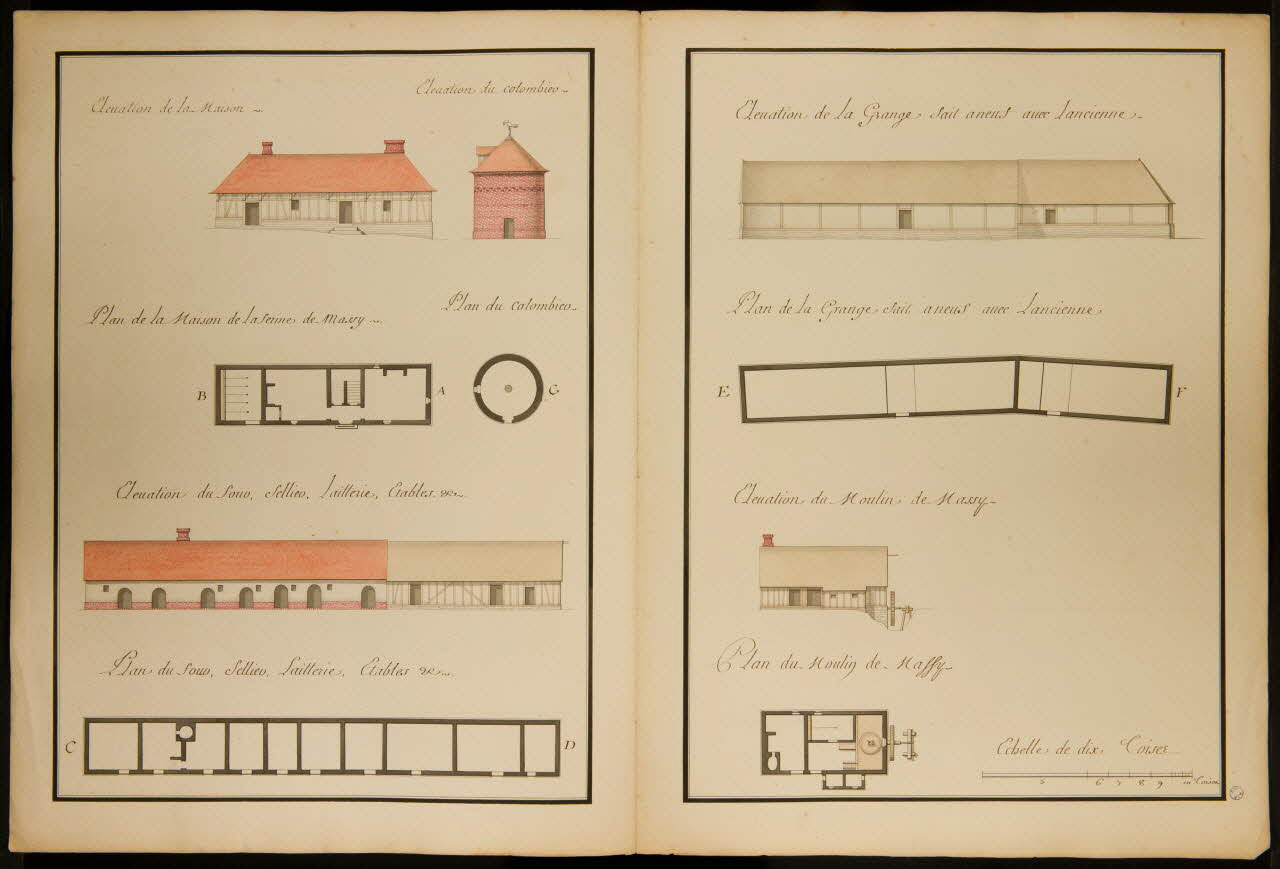 Eleuation de la Maison
Eleuation du colombier
Plan de la Maison de la ferme de Massy
Plan du colombier
B
A
G
Eleuation du four, Sellier, Laitterie, Etables &c
Plan du four, Sellier, Laitterie, Etables &c
C
D
Eleuation de la Grange fait aneuf auec Lancienne
Plan de la Grange fait aneuf auec Lancienne
E
F
Eleuation du Moulin de Massy
Plan du Moulin de Massy
Echelle de dix Toises
5 6 7 8 9 10 Toises